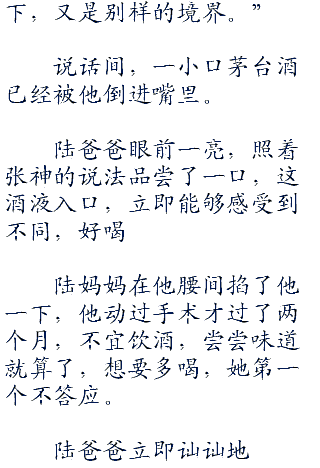 下，又是别样的境界。”
说话间，一小口茅台酒
已经被他倒进嘴里。
陆爸爸眼前一亮，照着
张神的说法品尝了一口，这
酒液入口，立即能够感受到
不同，好喝
陆妈妈在他腰间掐了他
一下，他动过手术才过了两
个月，不宜饮酒，尝尝味道
就算了，想要多喝，她第一
个不答应。
陆爸爸立即讪讪地